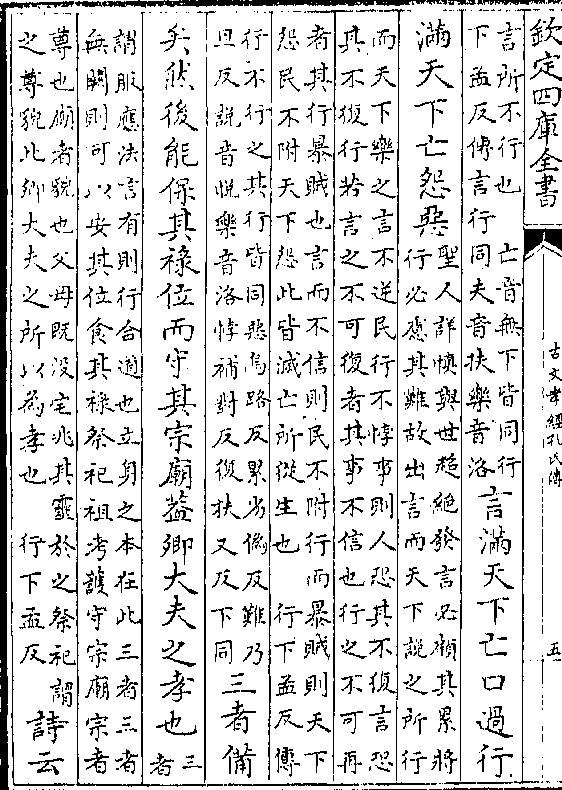 欽定四庫全書
古文孝經孔氏傳
五
言所不行也　亡音無下皆同行
下孟反傳言行同夫音扶樂音洛
言滿天下亡口過行
滿天下亡怨惡
聖人詳慎與世超絶發言必顧其累將
行必應其難故出言而天下說之所行
而天下樂之言不逆民行不悖事則人恐其不復言恐
其不復行若言之不可復者其事不信也行之不可再
者其行暴賊也言而不信則民不附行而暴賊則天下
怨民不附天下怨此皆滅亡所從生也　行下孟反傳
行不行之其行皆同惡烏路反累劣偽反難乃
旦反說音悅樂音洛悖補對反復扶又反下同
三者備
矣然後能保其祿位而守其宗廟蓋卿大夫之孝也
三
者
謂服應法言有則行合適也立身之本在此三者三者
無闕則可以安其位食其祿祭祀祖考護守宗廟宗者
尊也廟者貌也父母既没宅兆其靈於之祭祀謂
之尊貌此卿大夫之所以為孝也　行下孟反
詩云